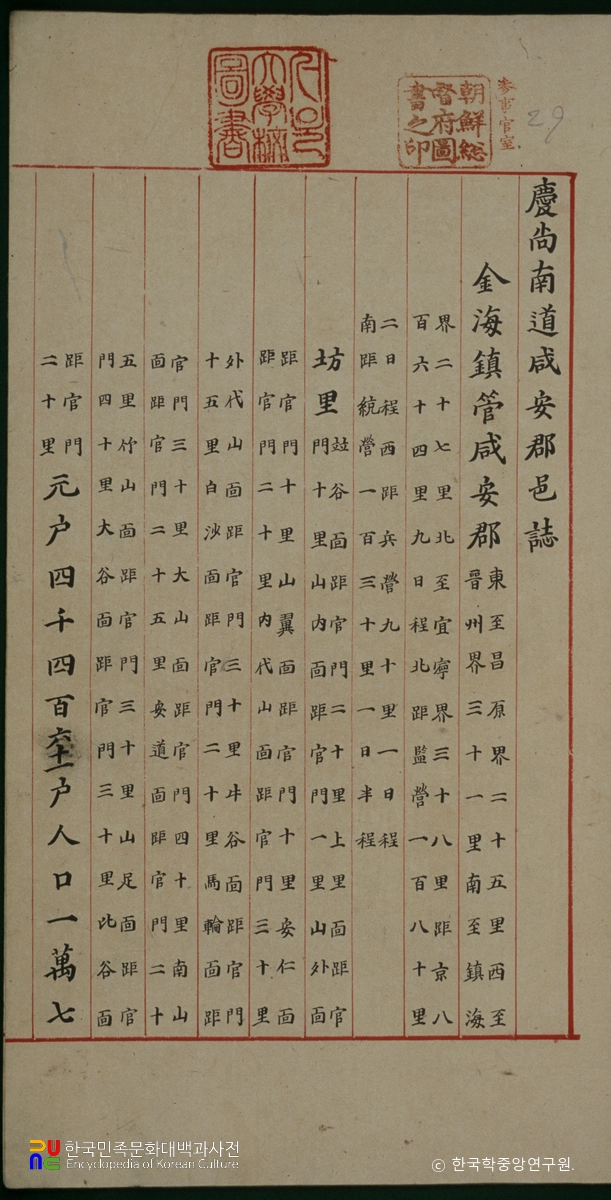 参事官室
朝鮮総
督府圖
書之印
서울
大學校
圖書
29
慶尙南道咸安郡邑誌
金海鎮管咸安郡
東至昌原界二十五里西至
晋州界三十一里南至鎮海
界二十七里北至宜寧界三十八里距京八
百六十四里九日程北距監營一百八十里
二日程西距兵營九十里一日程
南距統營一百三十里一日半程
坊里
谷面距官門二十里上里面距官
門十里山内面距官門一里山外面
距官門十里山翼面距官門十里安仁面
距官門二十里内代山面距官門三十里
外代山面距官門三十里牛谷面距官門
十五里白沙面距官門二十里馬輪面距
官門三十里大山面距官門四十里南山
面距官門二十五里安道面距官門二十
五里竹山面距官門三十里山足面距官
門四十里大谷面距官門三十里比谷面
距官門
二十里
元户四千四百六十一户人口一萬七
한국민족문화대백과사전
Encyclopedia of Korean Culture
© 한국학중앙연구원.